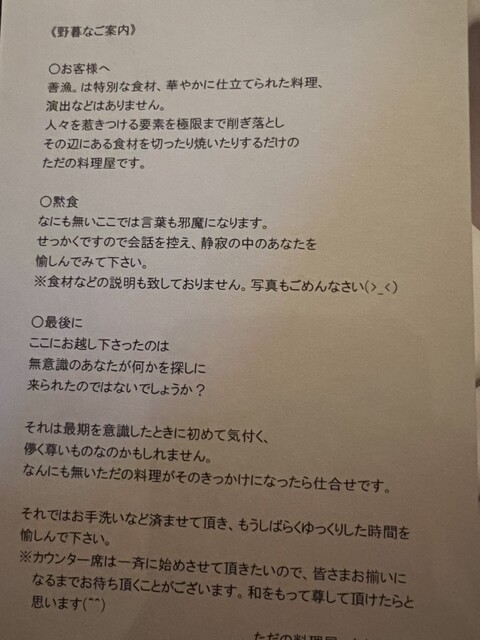 《野暮なご案内》
〇お客様へ
善漁。は特別な食材、華やかに仕立てられた料理、
演出などはありません。
人々を惹きつける要素を極限まで削ぎ落とし
その辺にある食材を切ったり焼いたりするだけの
ただの料理屋です。
〇黙食
なにも無いここでは言葉も邪魔になります。
せっかくですので会話を控え、静寂の中のあなたを
愉しんでみて下さい。
※食材などの説明も致しておりません。写真もごめんなさい(>_<)
〇最後に
ここにお越し下さったのは
無意識のあなたが何かを探しに
来られたのではないでしょうか？
それは最期を意識したときに初めて気付く、
儚く尊いものなのかもしれません。
なんにも無いただの料理がそのきっかけになったら仕合せです。
それではお手洗いなど済ませて頂き、もうしばらくゆっくりした時間を
愉しんで下さい。
※カウンター席は一斉に始めさせて頂きたいので、皆さまお揃いに
なるまでお待ち頂くことがございます。和をもって尊して頂けたらと
思います(^^)
ただの料理屋